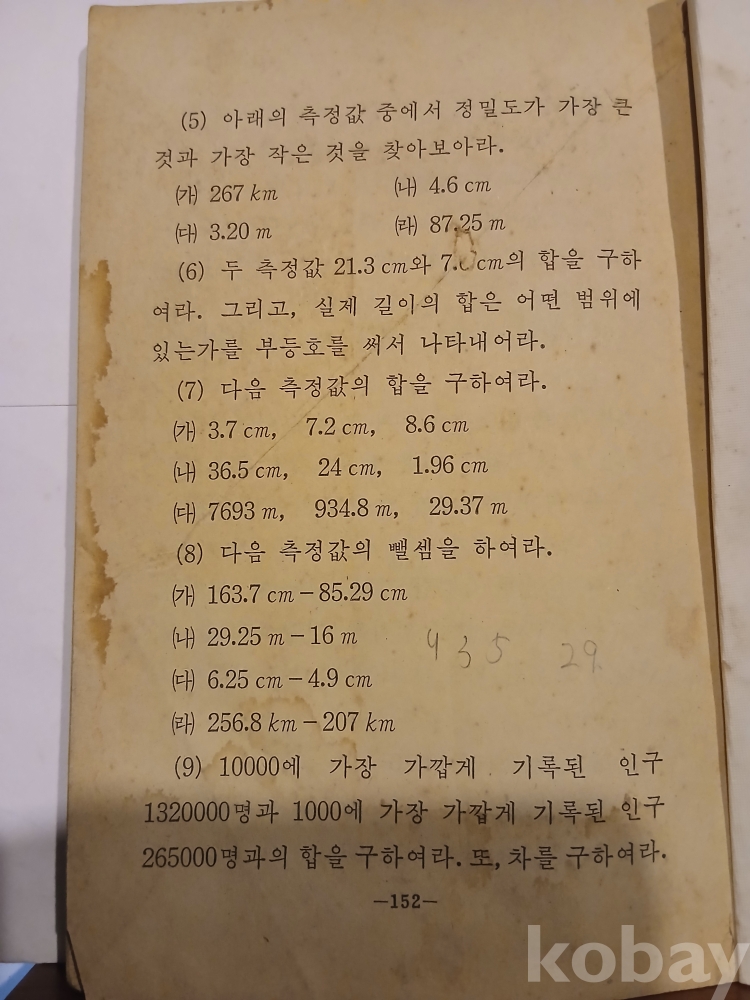 (5) 아래의 측정값 중에서 정밀도가 가장 큰
것과 가장 작은 것을 찾아보아라.
㈎ 267 km ㈏ 4.6 cm
㈐ 3.20 m ㈑ 87.25 m
(6) 두 측정값 21.3 cm와 cm의 합을 구하
여라. 그리고, 실제 길이의 합은 어떤 범위에
있는가를 부등호를 써서 나타내어라.
(7) 다음 측정값의 합을 구하여라.
㈎ 3.7 cm, 7.2 cm, 8.6 cm
㈏ 36.5 cm, 24 cm, 1.96 cm
㈐ 7693 m, 934.8 m, 29.37 m
(8) 다음 측정값의 뺄셈을 하여라.
㈎ 163.7 cm－85.29 cm
㈏ 29.25 m－16 m
435 29
㈐ 6.25 cm－4.9 cm
㈑ 256.8 km－207 km
(9) 10000에 가장 가깝게 기록된 인구
1320000명과 1000에 가장 가깝게 기록된 인구
265000명과의 합을 구하여라. 또, 차를 구하여라.
—152—
kobay